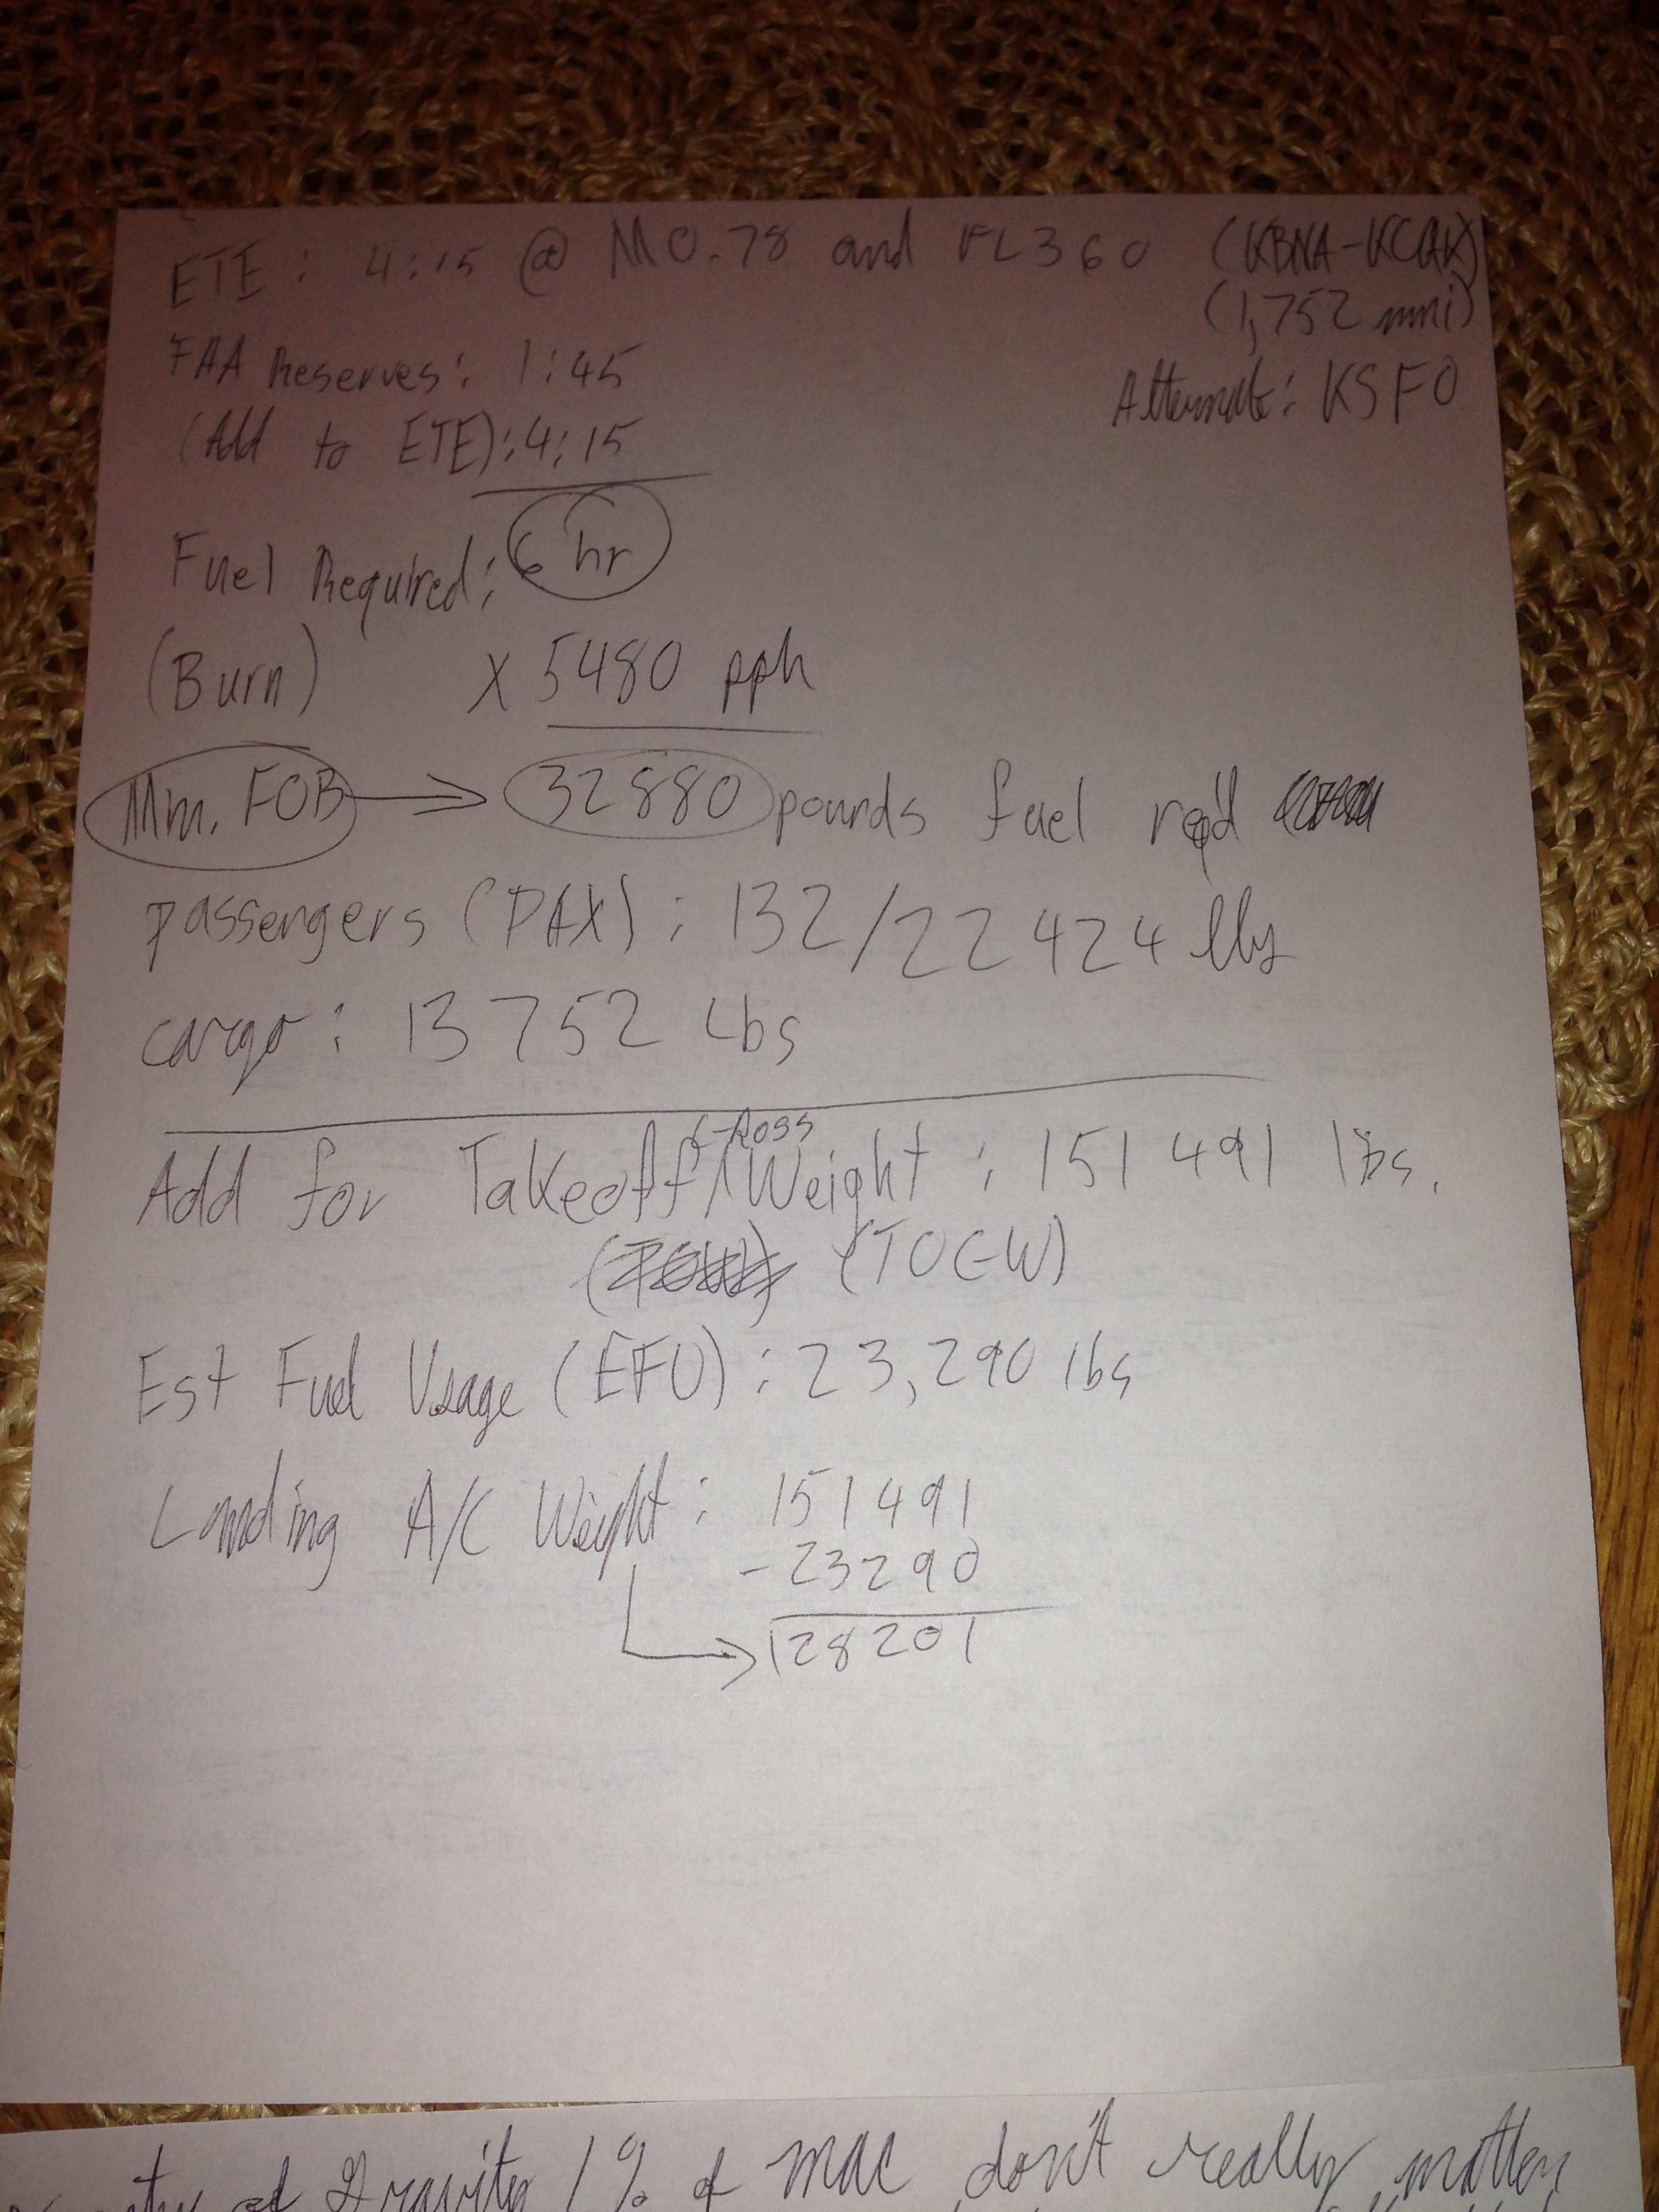 ETE: 4:15 @ M0.78 and FL360 (KBNA-KCAK)
(1,752 nmi)
FAA Reserves: 1:45
Alternate: KSFO
(Add to ETE): 4:15
Fuel Required: 6 hr
(Burn) X 5480 pph
Min. FOB → 32880 pounds fuel req'd
passengers (PAX): 132/22424 lbs
cargo: 13752 Lbs
Add for Takeoff Gross Weight: 151491 lbs.
(TOGW)
Est Fuel Usage (EFU): 23,290 lbs
Landing A/C Weight: 151491
-23290
128201
of Gravity / % of MAC don't really matter